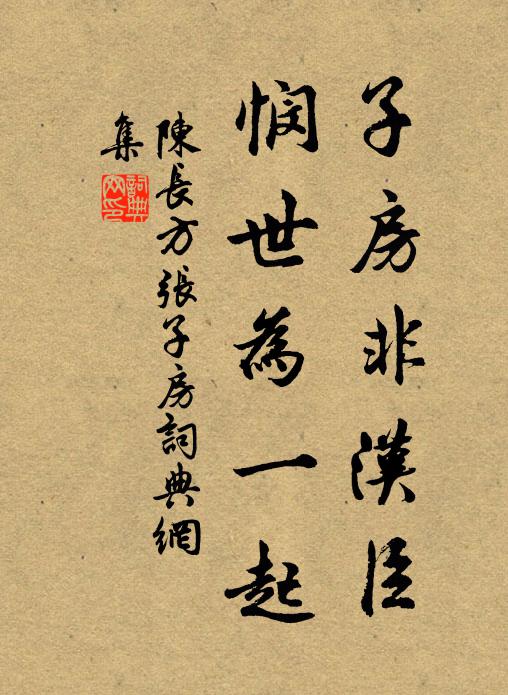 子房非漢臣
憫世為一起
陳長方張子房詞典網
集
詞典網印